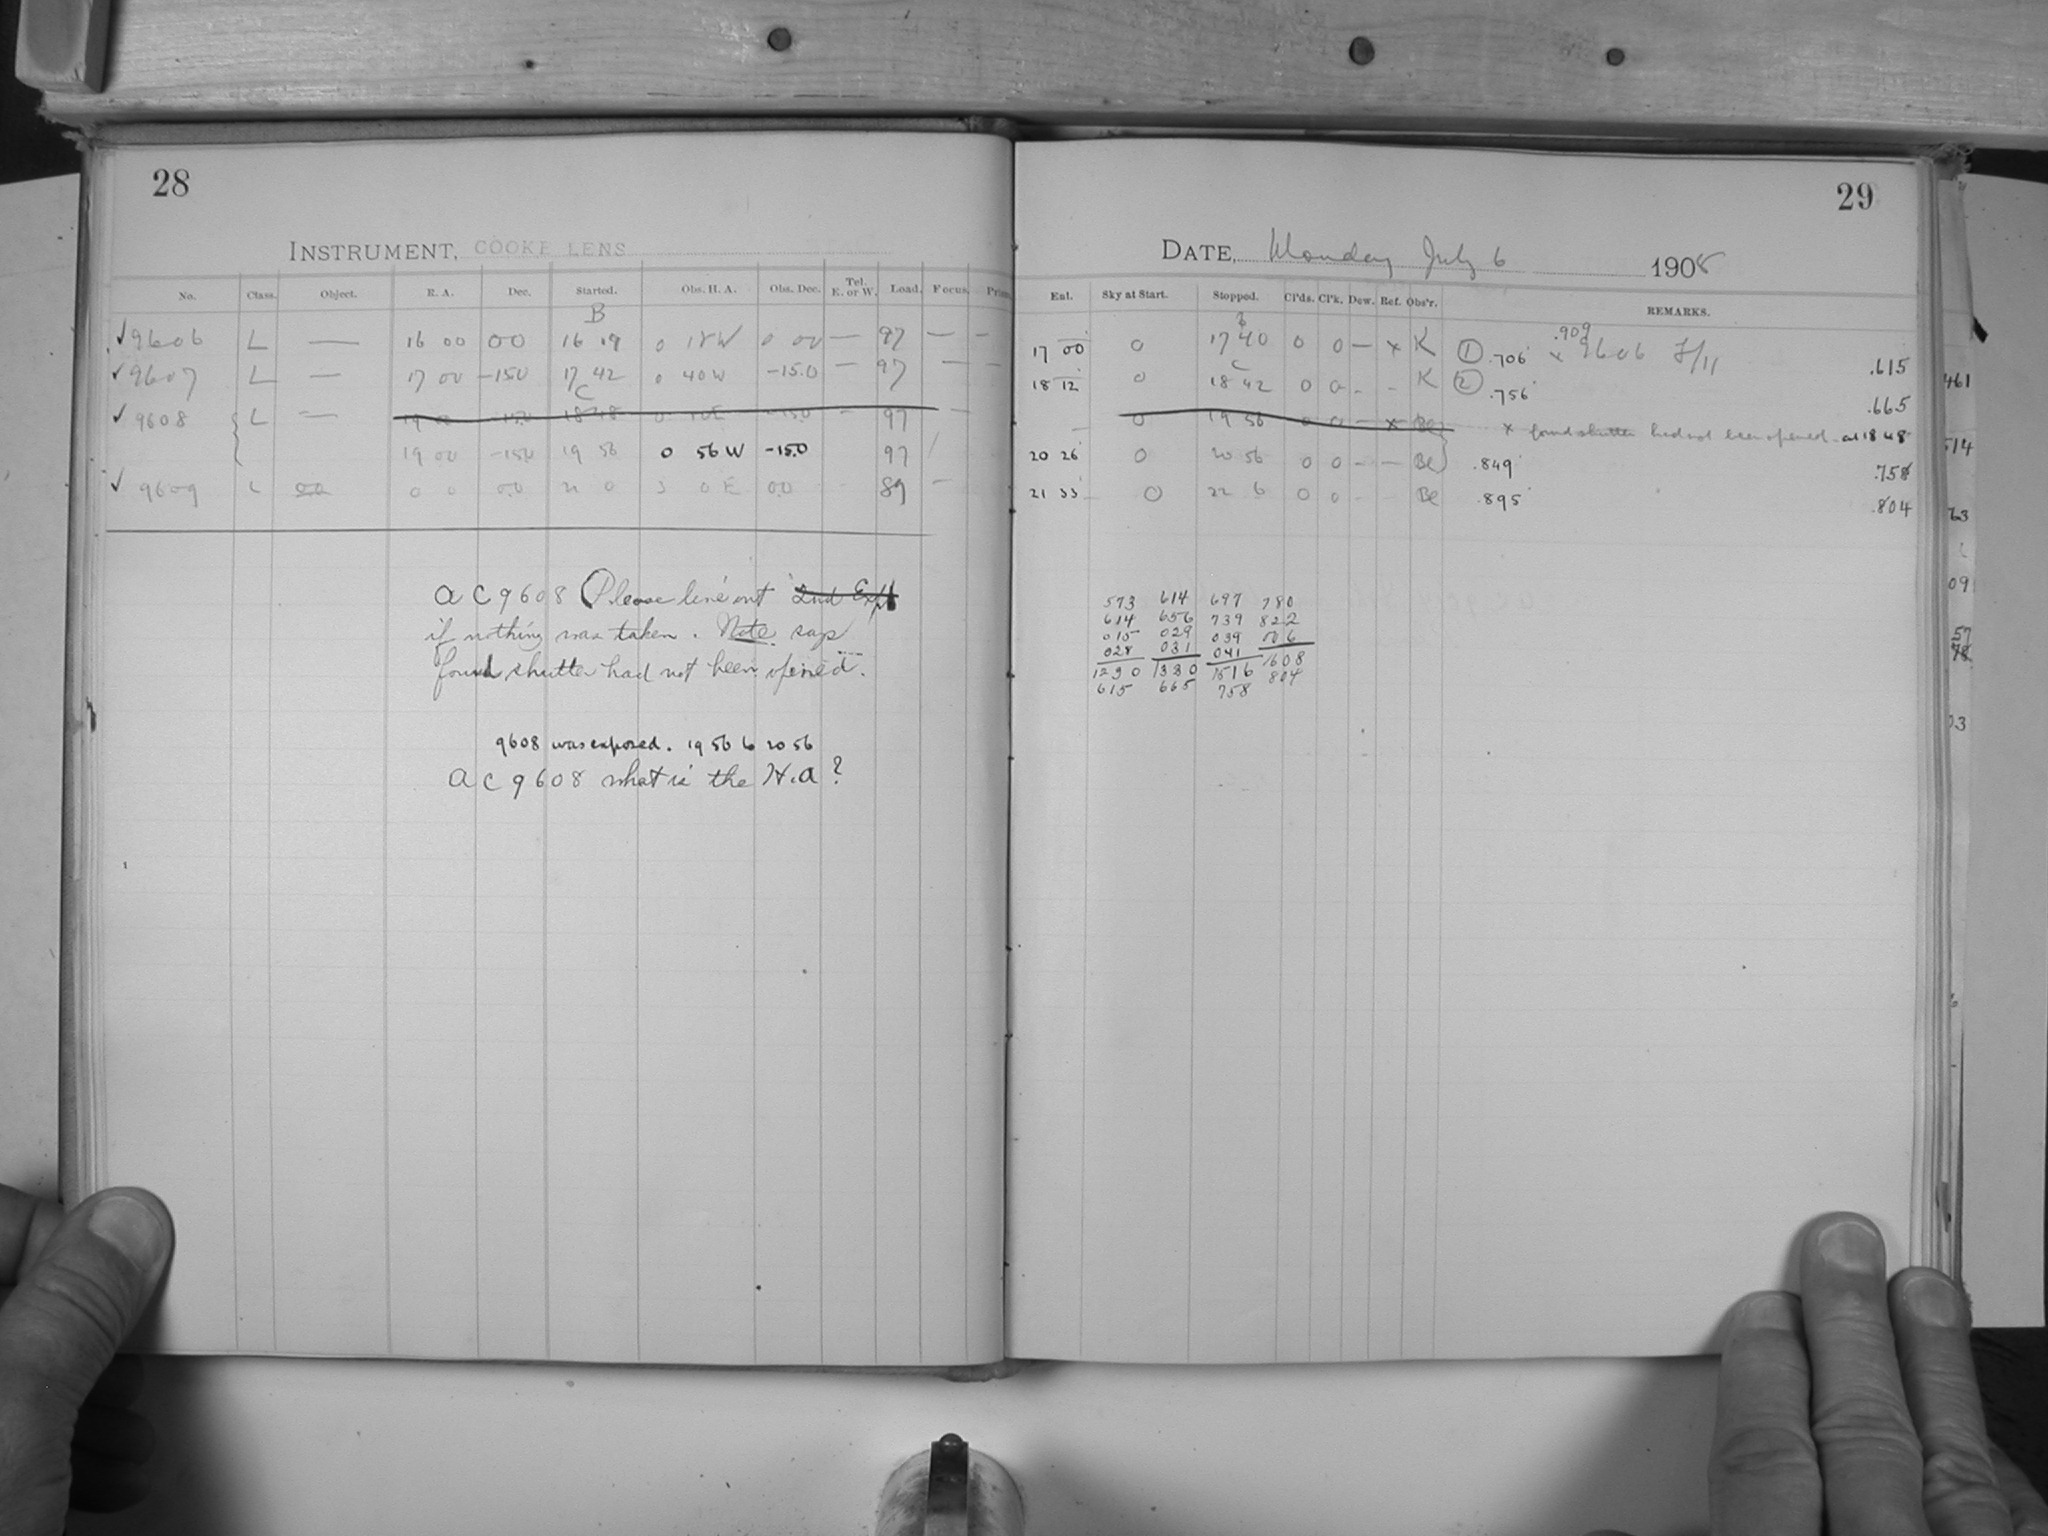 28
INSTRUMENT, COOKE LENS
No. Class. Object. R. A. Dec. Started. Obs. H. A. Obs. Dec. Tel. E. or W. Load. Focus. Prism.
B
✓ 9606 L — 16 00 00 16 19 0 18 W 0 00 — 97 — —
✓ 9607 L — 17 00 -15.0 17 42 0 40 W -15.0 — 97 — —
C
✓ 9608 L — 19 00 -15.0 18 48 0 10 E -15.0 — 97 —
19 00 -15.0 19 56 0 56 W -15.0 97
✓ 9609 L 00 0 0 0.0 21 0 3 0 E 0.0 89 —
a c 9608 Please line out 2nd Exp
if nothing was taken. Note says
found shutter had not been opened.
9608 was exposed. 19 56 to 20 56
a c 9608 what is the H.A?
29
DATE, Monday July 6 1908
Enl. Sky at Start. Stopped. Cl'ds. Cl'k. Dew. Ref. Obs'r. REMARKS.
17 00 0 17 40 0 0 — x K ① .706 x 9606 F/11 .615
.909
C
18 12 0 18 42 0 0 - - K ② .756 .665
0 19 56 0 0 — x Be x found shutter had not been opened at 18 48
20 26 0 20 56 0 0 — — Be .849 .758
21 33 0 22 6 0 0 - - Be .895 .804
573 614 697 780
614 656 739 822
015 029 039 006
028 031 041 1608
1290 1330 1516 804
615 665 758
461
514
63
09
57
03